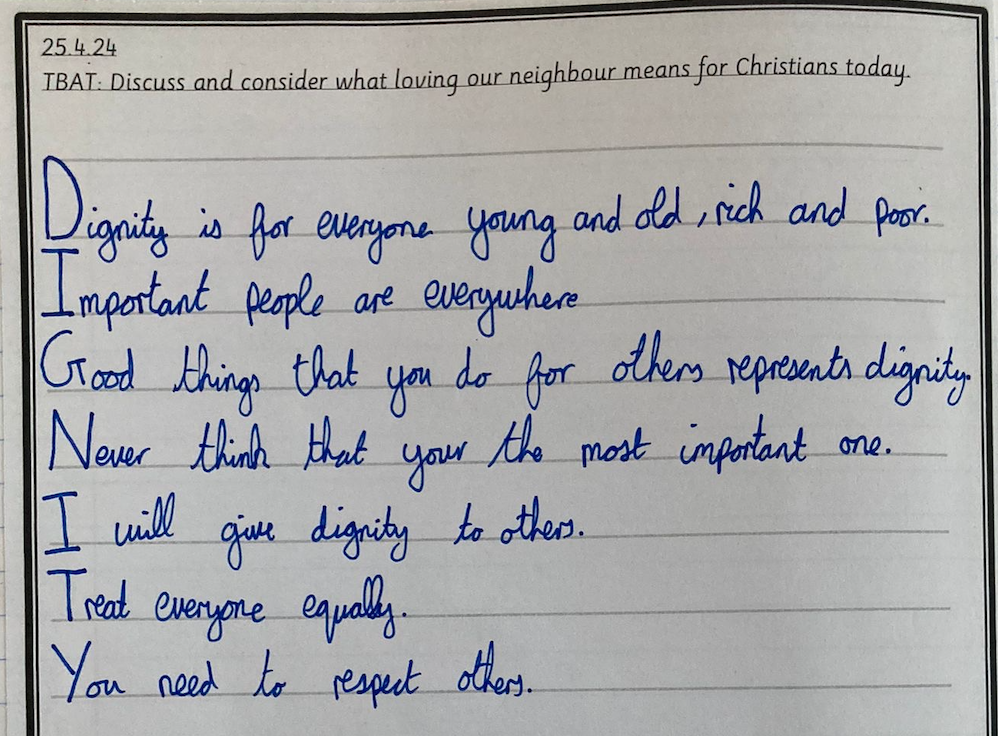 25.4.24
TBAT: Discuss and consider what loving our neighbour means for Christians today.
Dignity is for everyone young and old, rich and poor.
Important people are everywhere
Good things that you do for others represents dignity.
Never think that your the most important one.
I will give dignity to others.
Treat everyone equally.
You need to respect others.